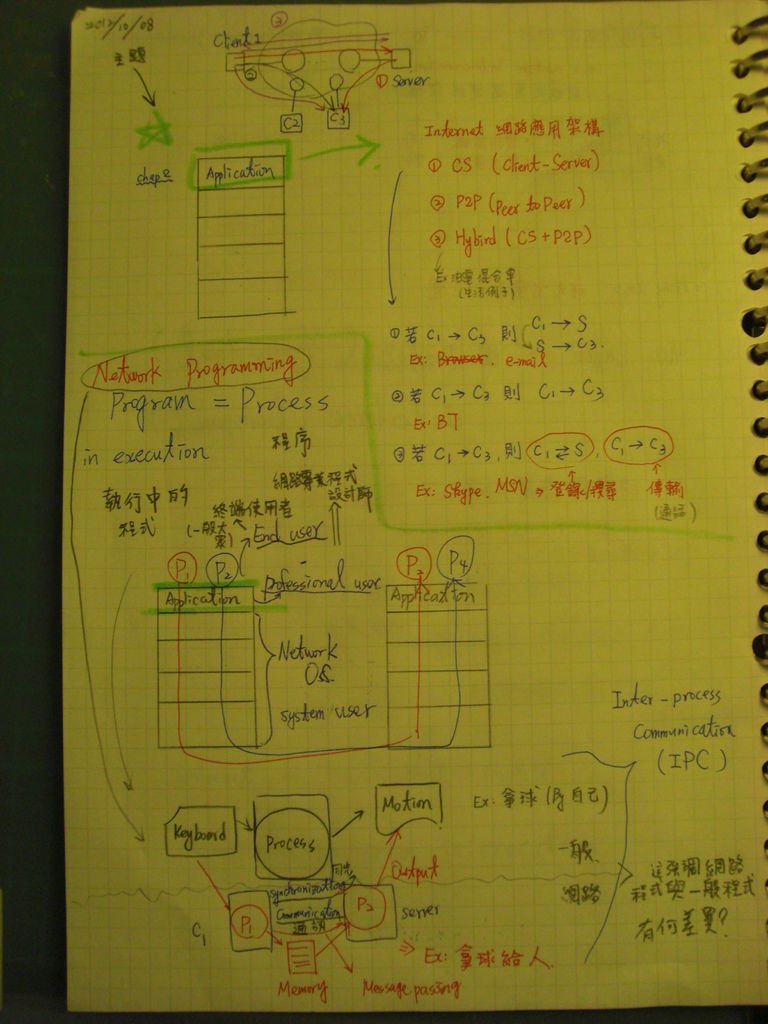 2012/10/08
主題
Client 1
②
②
① Server
C2
C3
chap2
Application
Internet 網路應用架構
① CS (Client-Server)
② P2P (Peer to Peer)
③ Hybird (CS + P2P)
Ex 油電混合車
(生活例子)
① 若 C1 → C3 則 C1 → S
S → C3.
Ex: Browser. e-mail
② 若 C1 → C3 則 C1 → C3
Ex: BT
③ 若 C1 → C3, 則 C1 ⇄ S, C1 → C3
Ex: Skype. MSN ⇒ 登錄/搜尋 傳輸
(通話)
Network Programming
Program = Process
in execution 程序
執行中的
程式
網路專業程式
設計師
終端使用者
(一般大眾)
End user
P1 P2
Professional user
P3 P4
Application
Application
Network
O.S.
system user
Inter-process
Communication
(IPC)
Keyboard
Process
Motion
Ex: 拿球 (By 自己)
一般
網路
這強調網路
程式與一般程式
有何差異?
同步
synchronization
Output
Communication
通訊
C1
P1
P2
server
⇒ Ex: 拿球給人
Memory
Message passing